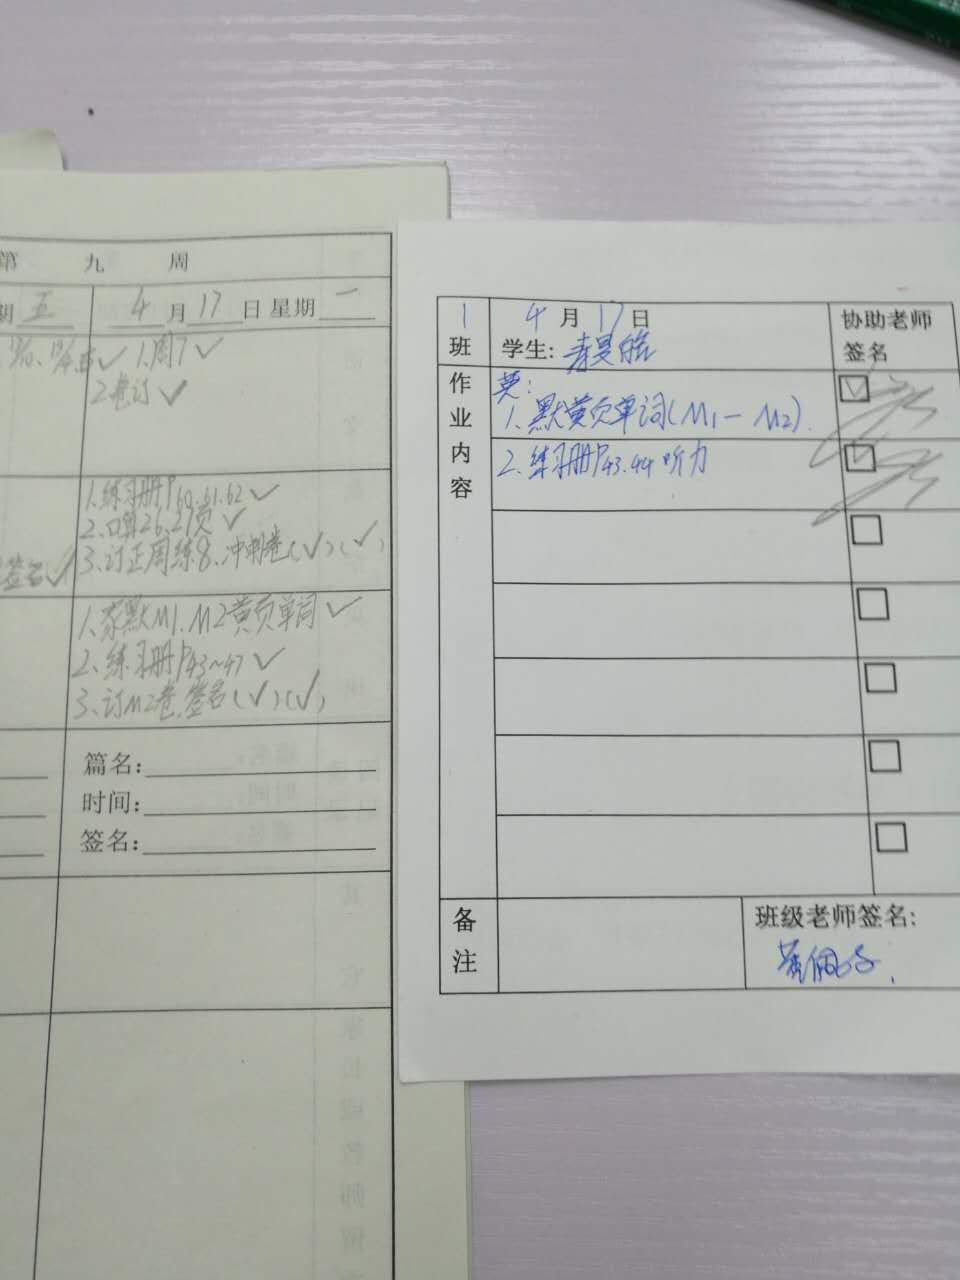 第 九 周
期 五 4 月 17 日 星期 一
1.周7 ✓
2.卷订 ✓
1.练习册P60.61.62 ✓
2.口算26.27页 ✓
3.订正周练8、冲刺卷(✓)(✓)
签名 ✓
1.家默M1.M2黄页单词 ✓
2.练习册P43~47 ✓
3.订M2卷,签名(✓)(✓)
篇名:
时间:
签名:
1 班
4 月 17 日
学生:
协助老师签名
作业内容
英:
1.默黄页单词(M1—M2).
2.练习册P43.44 听力
备注
班级老师签名: